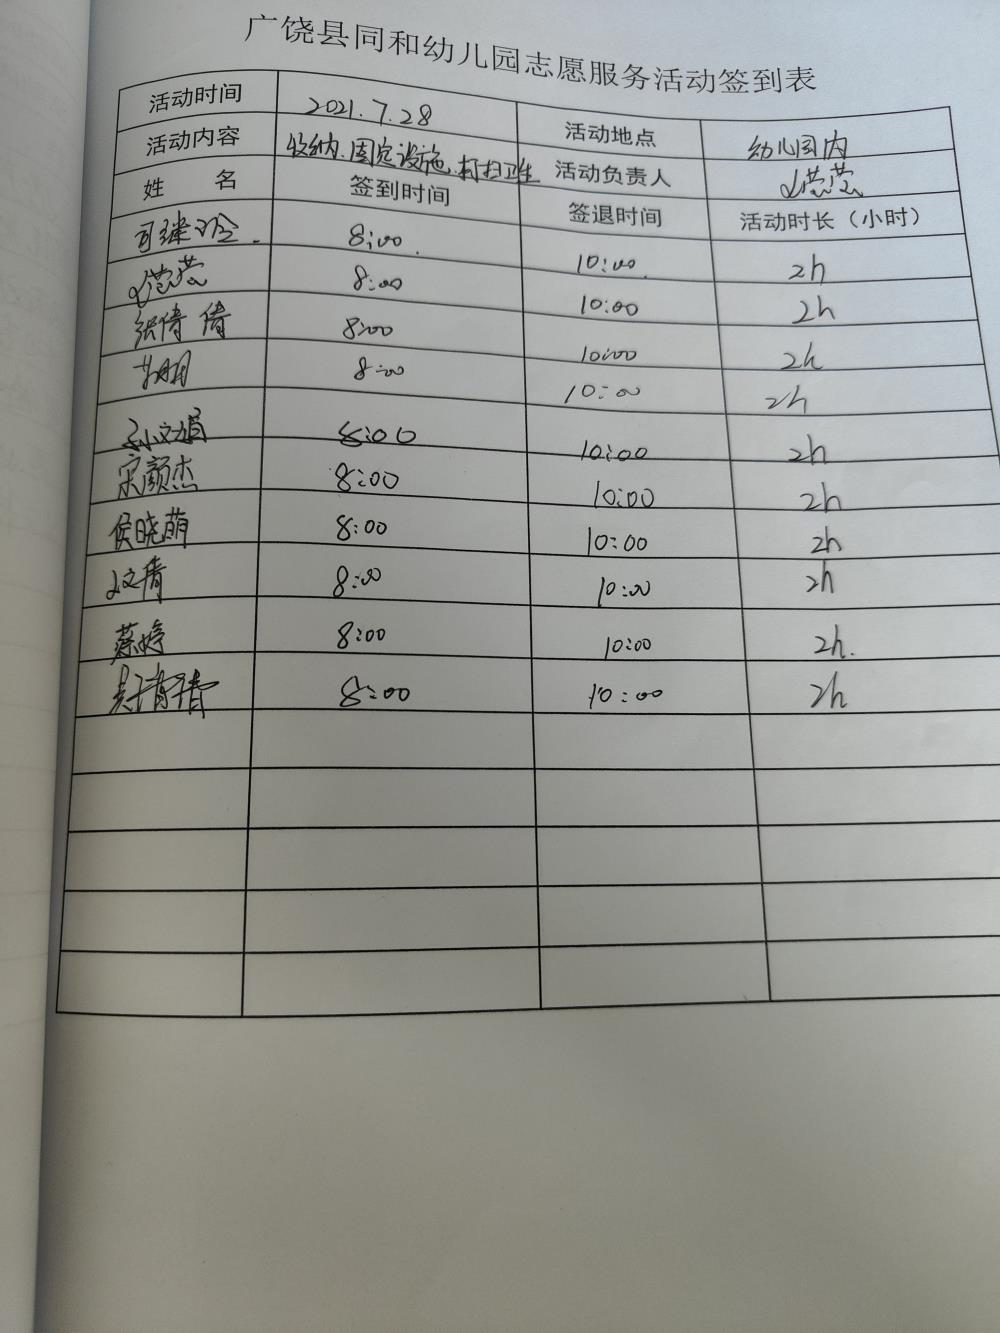 广饶县同和幼儿园志愿服务活动签到表
活动时间 2021.7.28 活动地点 幼儿园内
活动内容 收纳.固定设施.打扫卫生 活动负责人
姓 名 签到时间 签退时间 活动时长（小时）
8:00 10:00 2h
8:00 10:00 2h
张倩倩 8:00 10:00 2h
8:00 10:00 2h
孙文娟 8:00 10:00 2h
宋颜杰 8:00 10:00 2h
侯晓萌 8:00 10:00 2h
8:00 10:00 2h
蔡婷 8:00 10:00 2h.
吴倩倩 8:00 10:00 2h